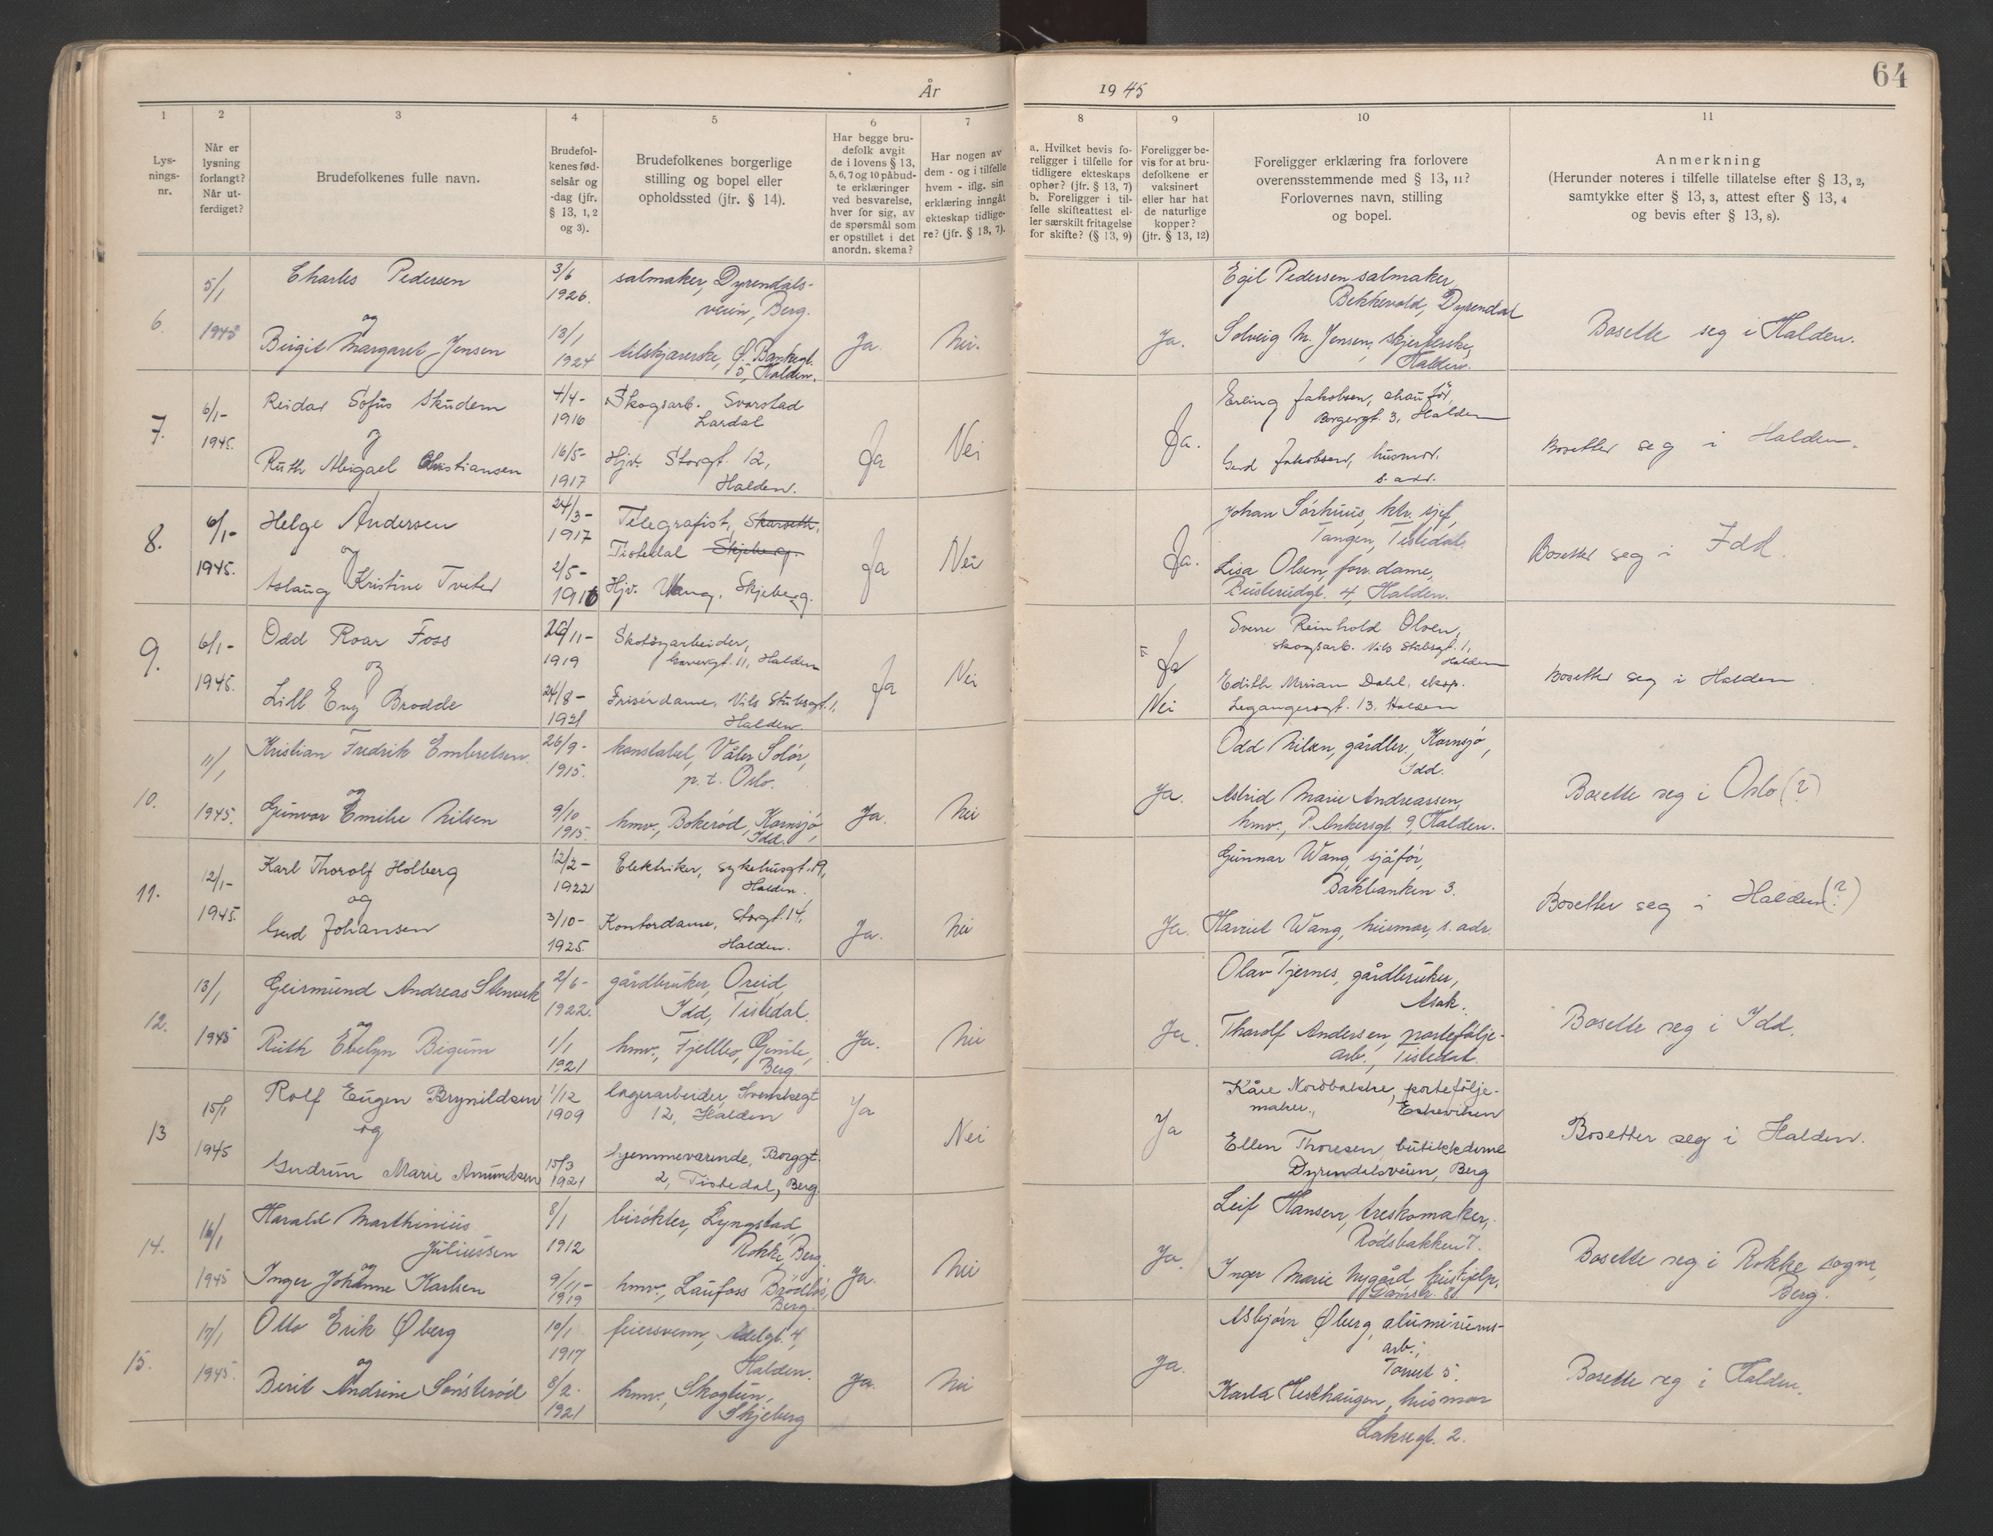 År
1945
64
1
2
3
4
5
6
7
8
9
10
11
Lys-
nings-
nr.
Når er
lysning
forlangt?
Når ut-
ferdiget?
Brudefolkenes fulle navn.
Brudefol-
kenes fød-
selsår og
-dag (jfr.
§ 13, 1, 2
og 3).
Brudefolkenes borgerlige
stilling og bopel eller
opholdssted (jfr. § 14).
Har begge bru-
defolk avgit
de i lovens § 13,
5, 6, 7 og 10 påbud-
te erklæringer
ved besvarelse,
hver for sig, av
de spørsmål som
er opstillet i det
anordn. skema?
Har nogen av
dem - og i tilfelle
hvem - iflg. sin
erklæring inngåt
ekteskap tidlige-
re? (jfr. § 13, 7).
a. Hvilket bevis fo-
religger i tilfelle for
tidligere ekteskaps
ophør? (jfr. § 13, 7)
b. Foreligger i til-
felle skifteattest el-
ler særskilt fritagelse
for skifte? (§ 13, 9)
Foreligger be-
vis for at bru-
defolkene er
vaksinert
eller har hat
de naturlige
kopper?
(jfr. § 13, 12)
Foreligger erklæring fra forlovere
overensstemmende med § 13, 11?
Forlovernes navn, stilling
og bopel.
Anmerkning
(Herunder noteres i tilfelle tillatelse efter § 13, 2,
samtykke efter § 13, 3, attest efter § 13, 4
og bevis efter § 13, 8).
6.
5/1
1945
Charles Pedersen
og
Birgit Margaret Jensen
3/6
1926.
13/1
1924
salmaker, Dyrendals-
veien, Berg.
tilskjærerske, Ø. Bankegt.
5, Halden.
Ja.
Nei.
Ja.
Egil Pedersen salmaker,
Bekkevold, Dyrendal
Solveig M. Jensen,
Halden.
Bosette seg i Halden.
7.
6/1-
1945.
Reidar Sofus Skudem
og
Ruth Abigael Christiansen
4/4-
1916
16/5-
1917
Skogsarb. Svarstad
Lardal
Hjv. Storgt 12,
Halden.
Ja
Nei
Ja.
Erling Jakobsen, chaufför,
Borgergt. 3, Halden
Gerd Jakobsen, husmor.
s. adr.
Bosetter seg i Halden.
8.
6/1-
1945.
Helge Andersen
og
Aslaug Kristine Tveter
24/3-
1917
2/5-
1916
Telegrafist,
Tistedal Skjeberg.
Hjv. Wang, Skjeberg.
Ja
Nei
Ja.
Johan Sørhuus, ktr. sjef,
Tangen, Tistedal.
Lisa Olsen, forr. dame,
Busterudgt. 4, Halden.
Bosetter seg i Idd.
9.
6/1-
1945.
Odd Roar Foss
og
Lill Evy Brodde
26/11-
1919
24/8-
1921
Skotøyarbeider,
Halden
Frisérdame, Nils Stubsgt. 1,
Halden.
Ja
Nei
Ja
Nei
Sverre Reinhold Olsen,
Skogsarb. Nils Stubsgt. 1,
Halden
Edith Mirian Dahl, eksp.
Legangersgt. 13, Halden
Bosetter seg i Halden
10.
11/1
1945.
Kristian Fredrik Embretsen.
og
Gunvor Emilie Nilsen
26/9-
1915.
9/10
1915.
konstabel, Våler Solør,
p. t. Oslo.
hmv., Bokerød, Kornsjø,
Idd.
Ja.
Nei
Ja.
Odd Nilsen, gårdbr., Kornsjø,
Idd.
Astrid Marie Andreassen,
hmv., P. Ankersgt 9, Halden.
Bosette seg i Oslo (?)
11.
12/1-
1945.
Karl Thorolf Holberg
og
Gerd Johansen
12/2-
1922
3/10-
1925
Elektriker, Sykehusgt. 19,
Halden.
Kontordame, Storgt. 14,
Halden.
Ja.
Nei
Ja.
Gunnar Wang, sjåfør,
Bakbanken 3.
Harriet Wang, husmor, s. adr.
Bosetter seg i Halden (?)
12.
13/1
1945
Geirmund Andreas Stenerk
og
Ruth Evelyn Bigum
2/6-
1922.
1/1
1921
gårdbruker, Oreid,
Idd, Tistedal.
hmv., Fjellbo, Gimle,
Berg
Ja.
Nei
Ja.
Olav Tjernes, gårdbruker,
Asak.
Thorolf Andersen, portefølje-
arb., Tistedal.
Bosette seg i Idd.
13
15/1
1945
Rolf Eugen Brynildsen
og
Gudrun Marie Amundsen
1/12
1909
15/3
1921
lagerarbeider, Svenskegt
12, Halden
hjemmeværende, Borggt.
2, Tistedal, Berg.
Ja
Nei
Ja
Kåre Nordbakke, portefølje-
maker., Eskeviken
Ellen Thoresen, butikkdame
Dyrendalsveien, Berg
Bosetter seg i Halden.
14.
16/1
1945
Harald Marthinius
Juliussen
og
Inger Johanne Karlsen
8/1
1912
9/11-
1919
birøkter, Lyngstad,
Rokke, Berg
hmv., Laufoss Brødløs,
Berg
Ja.
Nei
Ja.
Leif Hansen, treskomaker,
Rødsbakken 7.
Inger Marie Nygård, hushjelp,
Bosette seg i Rokke sogn,
Berg.
15.
17/1
1945
Otto Erik Øberg
og
Berit Andrine Sønsterød
10/1
1917
8/2.
1921
feiersvenn, Adelgt. 4,
Halden.
hmv., Skogtun,
Skjeberg
Ja.
Nei
Ja.
Asbjørn Øberg, aluminiums-
arb.,
Torvet 5.
Karla Hesthaugen, husmor
Laksegt. 2.
Bosette seg i Halden.